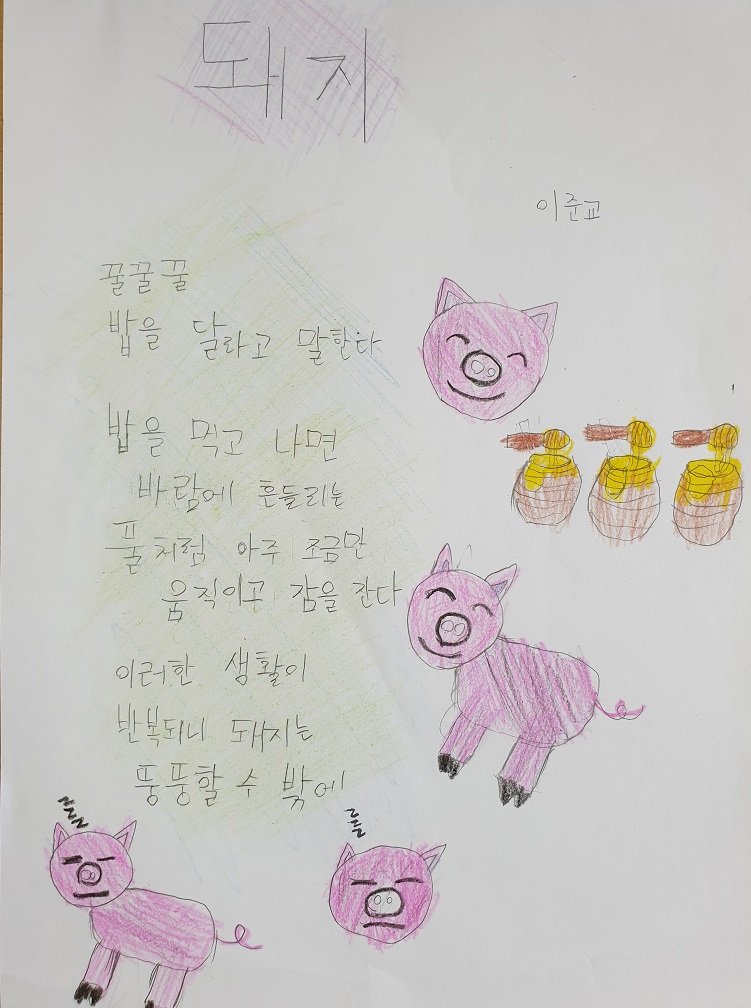 돼지
이준교
꿀꿀꿀
밥을 달라고 말한다
밥을 먹고 나면
바람에 흔들리는
풀처럼 아주 조금만
움직이고 잠을 잔다
이러한 생활이
반복되니 돼지는
뚱뚱할 수 밖에